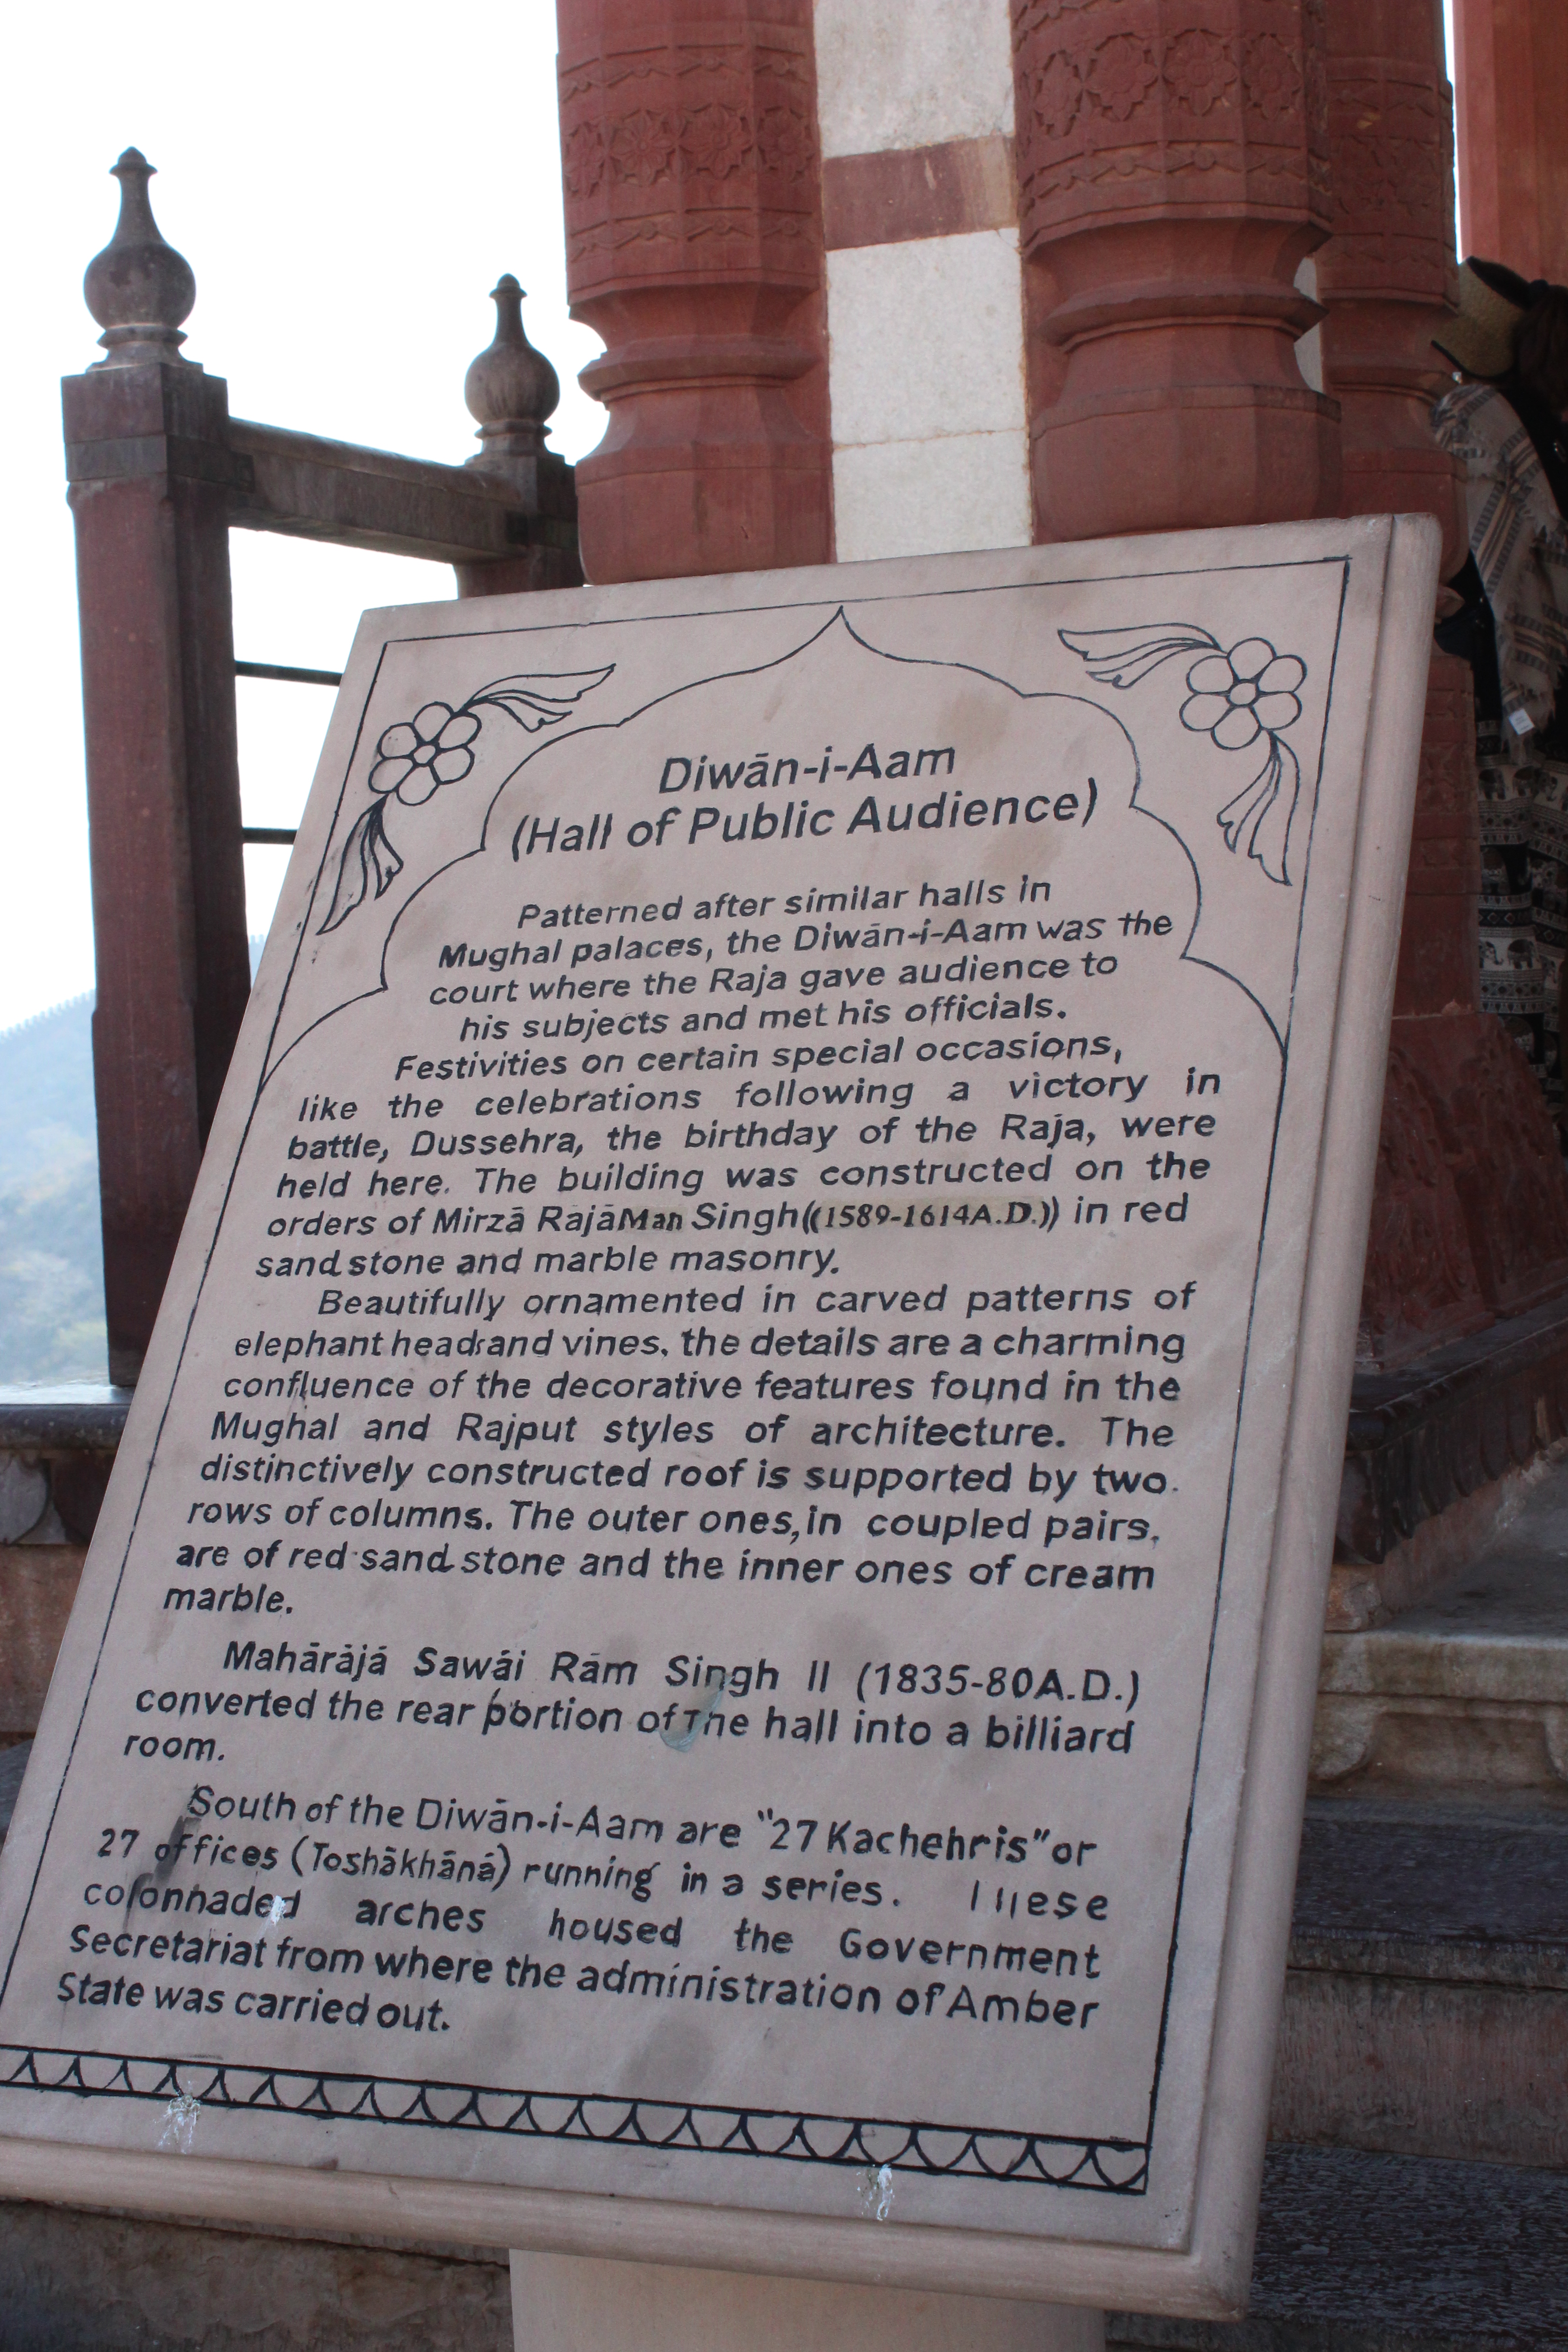 Diwān-i-Aam
(Hall of Public Audience)
Patterned after similar halls in
Mughal palaces, the Diwān-i-Aam was the
court where the Raja gave audience to
his subjects and met his officials.
Festivities on certain special occasions,
like the celebrations following a victory in
battle, Dussehra, the birthday of the Raja, were
held here. The building was constructed on the
orders of Mirzā RajāMan Singh((1589-1614A.D.)) in red
sand stone and marble masonry.
Beautifully ornamented in carved patterns of
elephant heads and vines. the details are a charming
confluence of the decorative features found in the
Mughal and Rajput styles of architecture. The
distinctively constructed roof is supported by two
rows of columns. The outer ones, in coupled pairs.
are of red sand stone and the inner ones of cream
marble.
Mahārājā Sawāi Rām Singh II (1835-80A.D.)
converted the rear portion of The hall into a billiard
room.
South of the Diwān-i-Aam are "27 Kachehris" or
27 offices (Toshākhānā) running in a series. These
colonnaded arches housed the Government
Secretariat from where the administration of Amber
State was carried out.